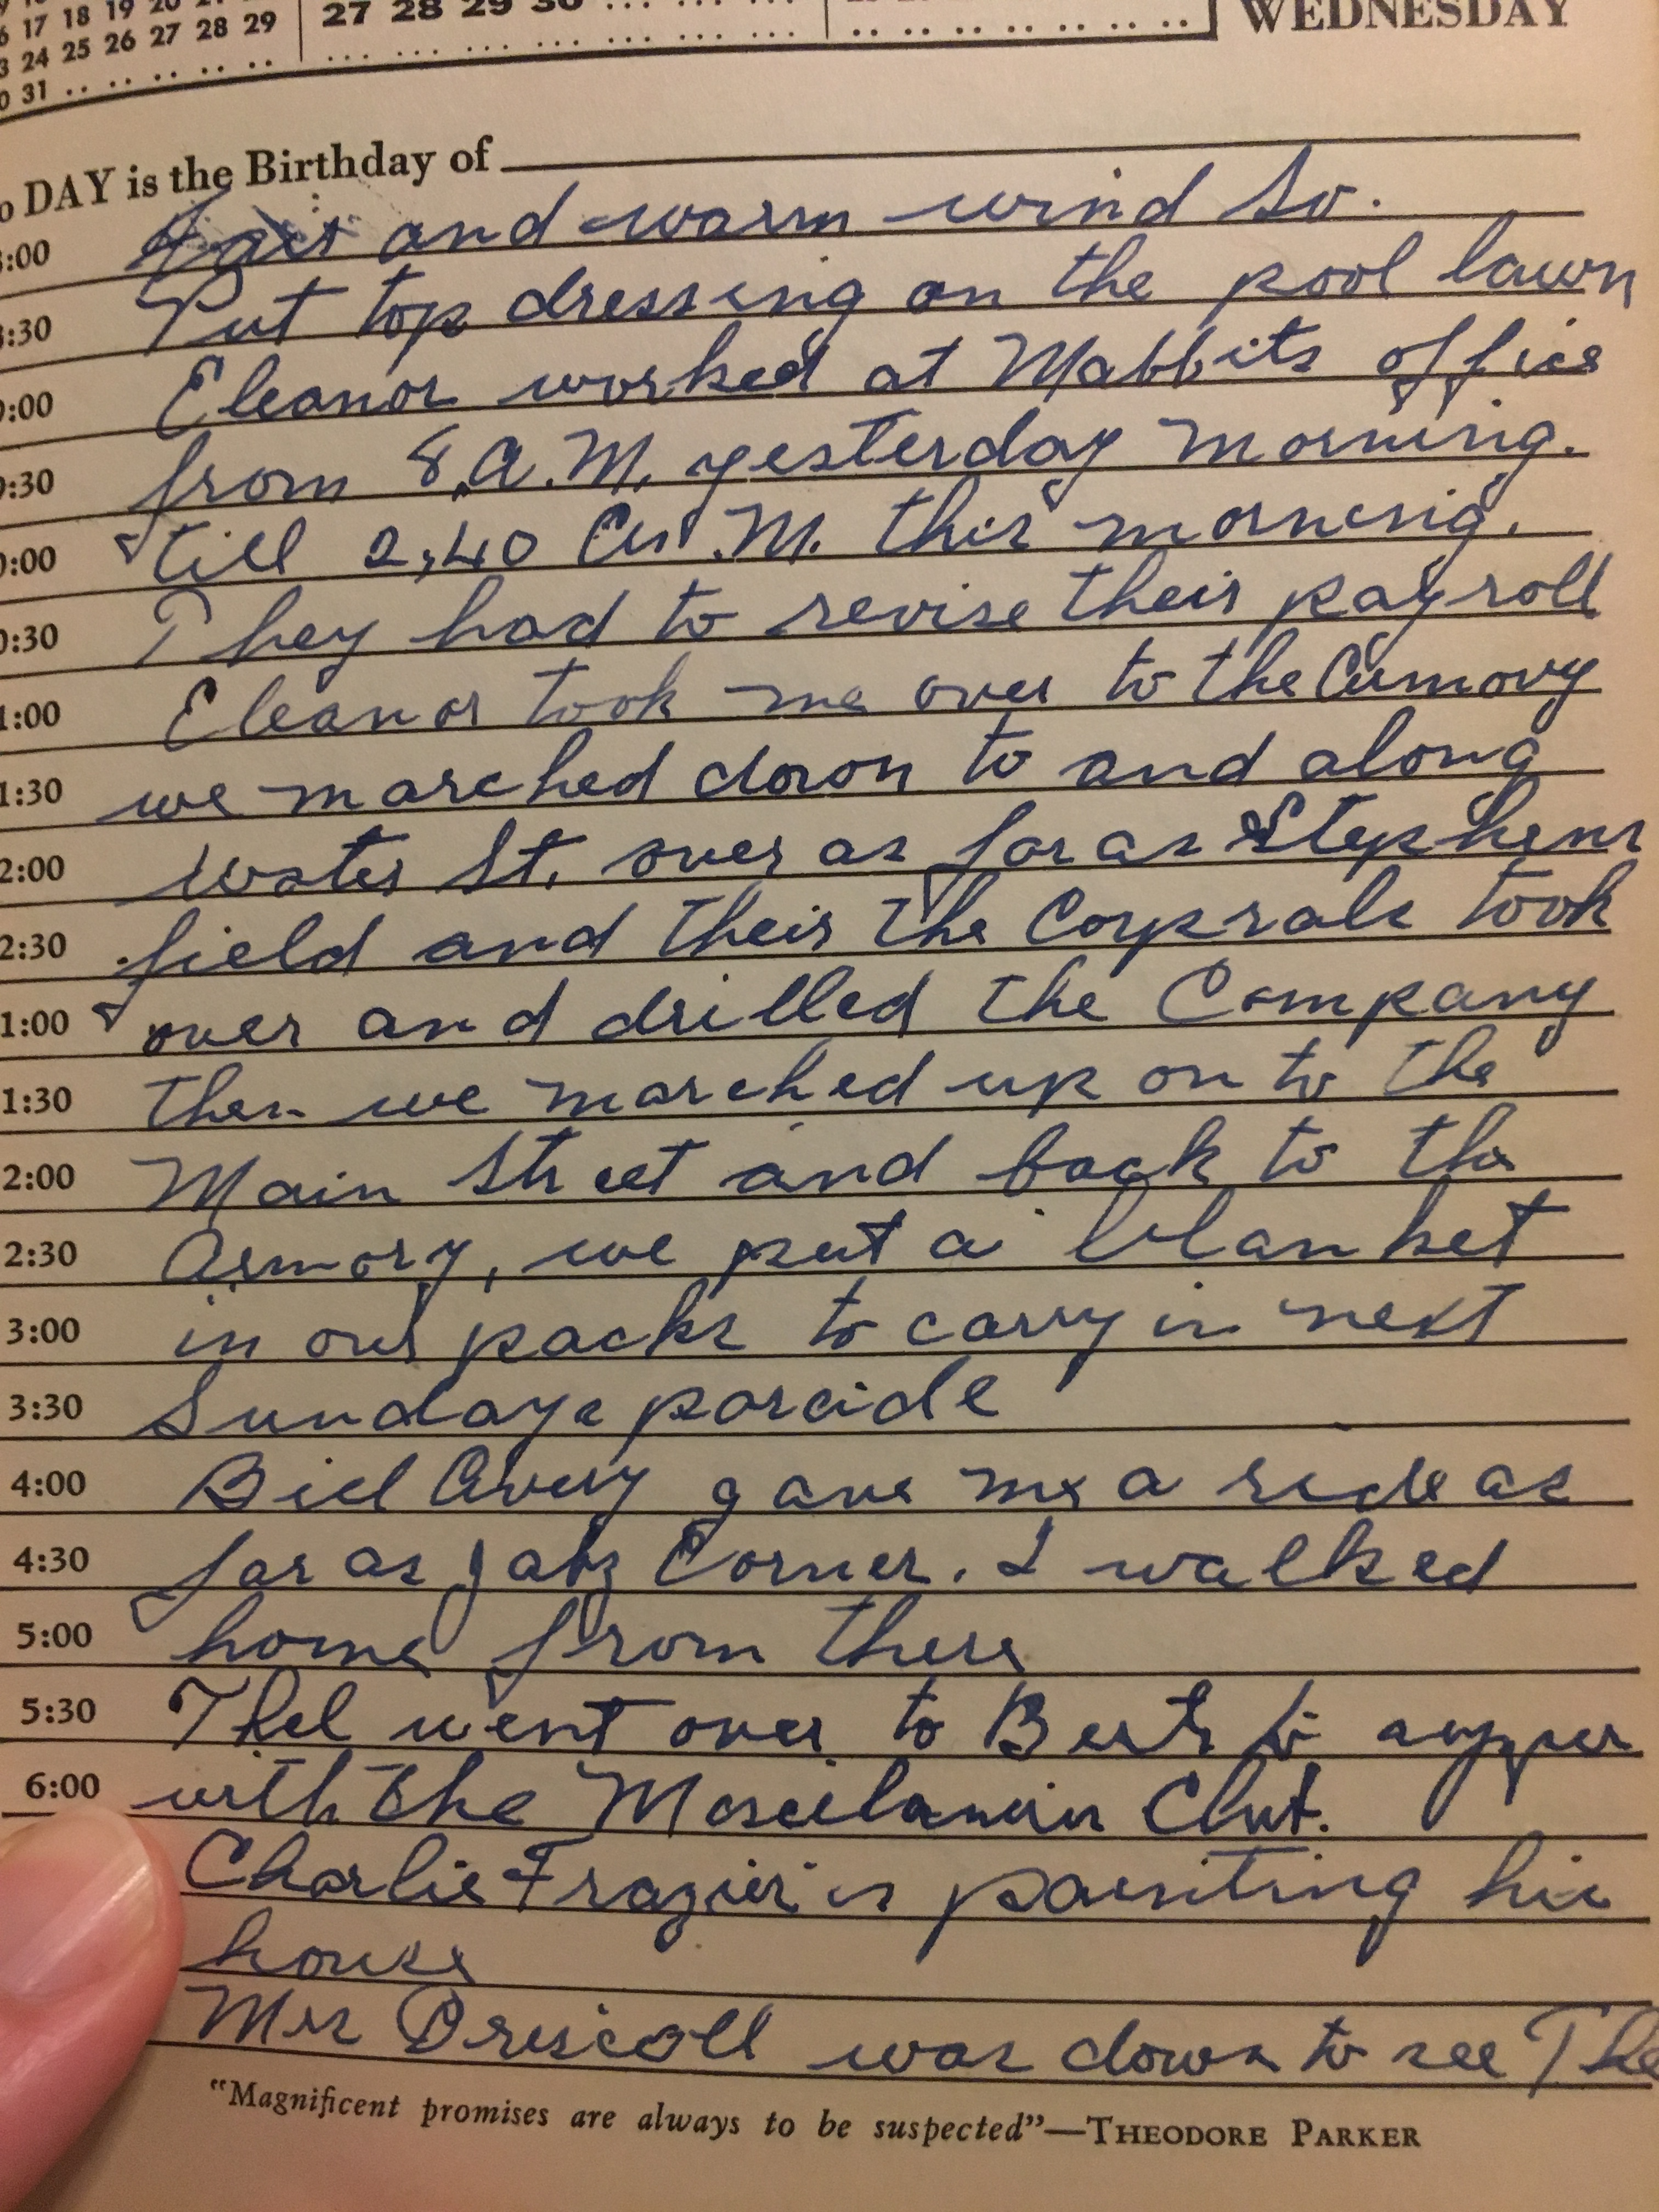 17 18 19 20 21
24 25 26 27 28 29
31 .. .. .. .. ..
27 28 29 30 ... ... ...
... ... ... ... ... ... ...
.. .. .. .. .. .. ..
WEDNESDAY
DAY is the Birthday of
:00 and warm wind So.
:30 Put top dressing on the pool lawn
:00 Eleanor worked at Mabbits office
:30 from 8,A.M, yesterday morning.
:00 till 2,40 A.M. this morning.
:30 They had to revise their payroll
1:00 Eleanor took me over to the Armory
1:30 we marched down to and along
2:00 Water St. over as far as Stephens
2:30 field and their the Corprals took
1:00 over and drilled the Company
1:30 then we marched up on to the
2:00 Main Street and back to the
2:30 Armory, we put a blanket
3:00 in our packs to carry in next
3:30 Sundays parade
4:00 Bill Avery gave me a ride as
4:30 far as Corner. I walked
5:00 home from there
5:30 Thel went over to Berts to supper
6:00 with the Club.
Charlie Frazier is painting his
house
Mrs Driscoll was down to see The
"Magnificent promises are always to be suspected"—THEODORE PARKER